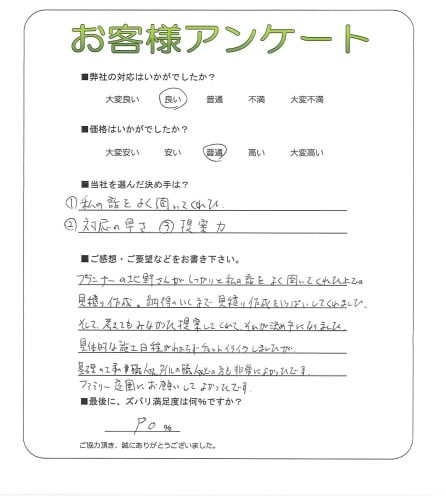 お客様アンケート
■弊社の対応はいかがでしたか?
大変良い 良い 普通 不満 大変不満
■価格はいかがでしたか?
大変安い 安い 普通 高い 大変高い
■当社を選んだ決め手は?
① 私の話をよく聞いてくれた
② 対応の早さ ③ 提案力
■ご感想・ご要望などをお書き下さい。
プランナーの北野さんがしっかりと私の話をよく聞いてくれた上での
見積り作成。納得のいくまで見積り作成をいっぱいしてくれました。
そして、考えてもみなかった提案してくれて、それが決め手になりました
具体的な施工日程がわからずチョットイライラしましたが
基礎の工事職人、タイルの職人などの方も非常によかったです。
ファミリー庭園にお願いしてよかったです。
■最後に、ズバリ満足度は何%ですか?
90 %
ご協力頂き、誠にありがとうございました。